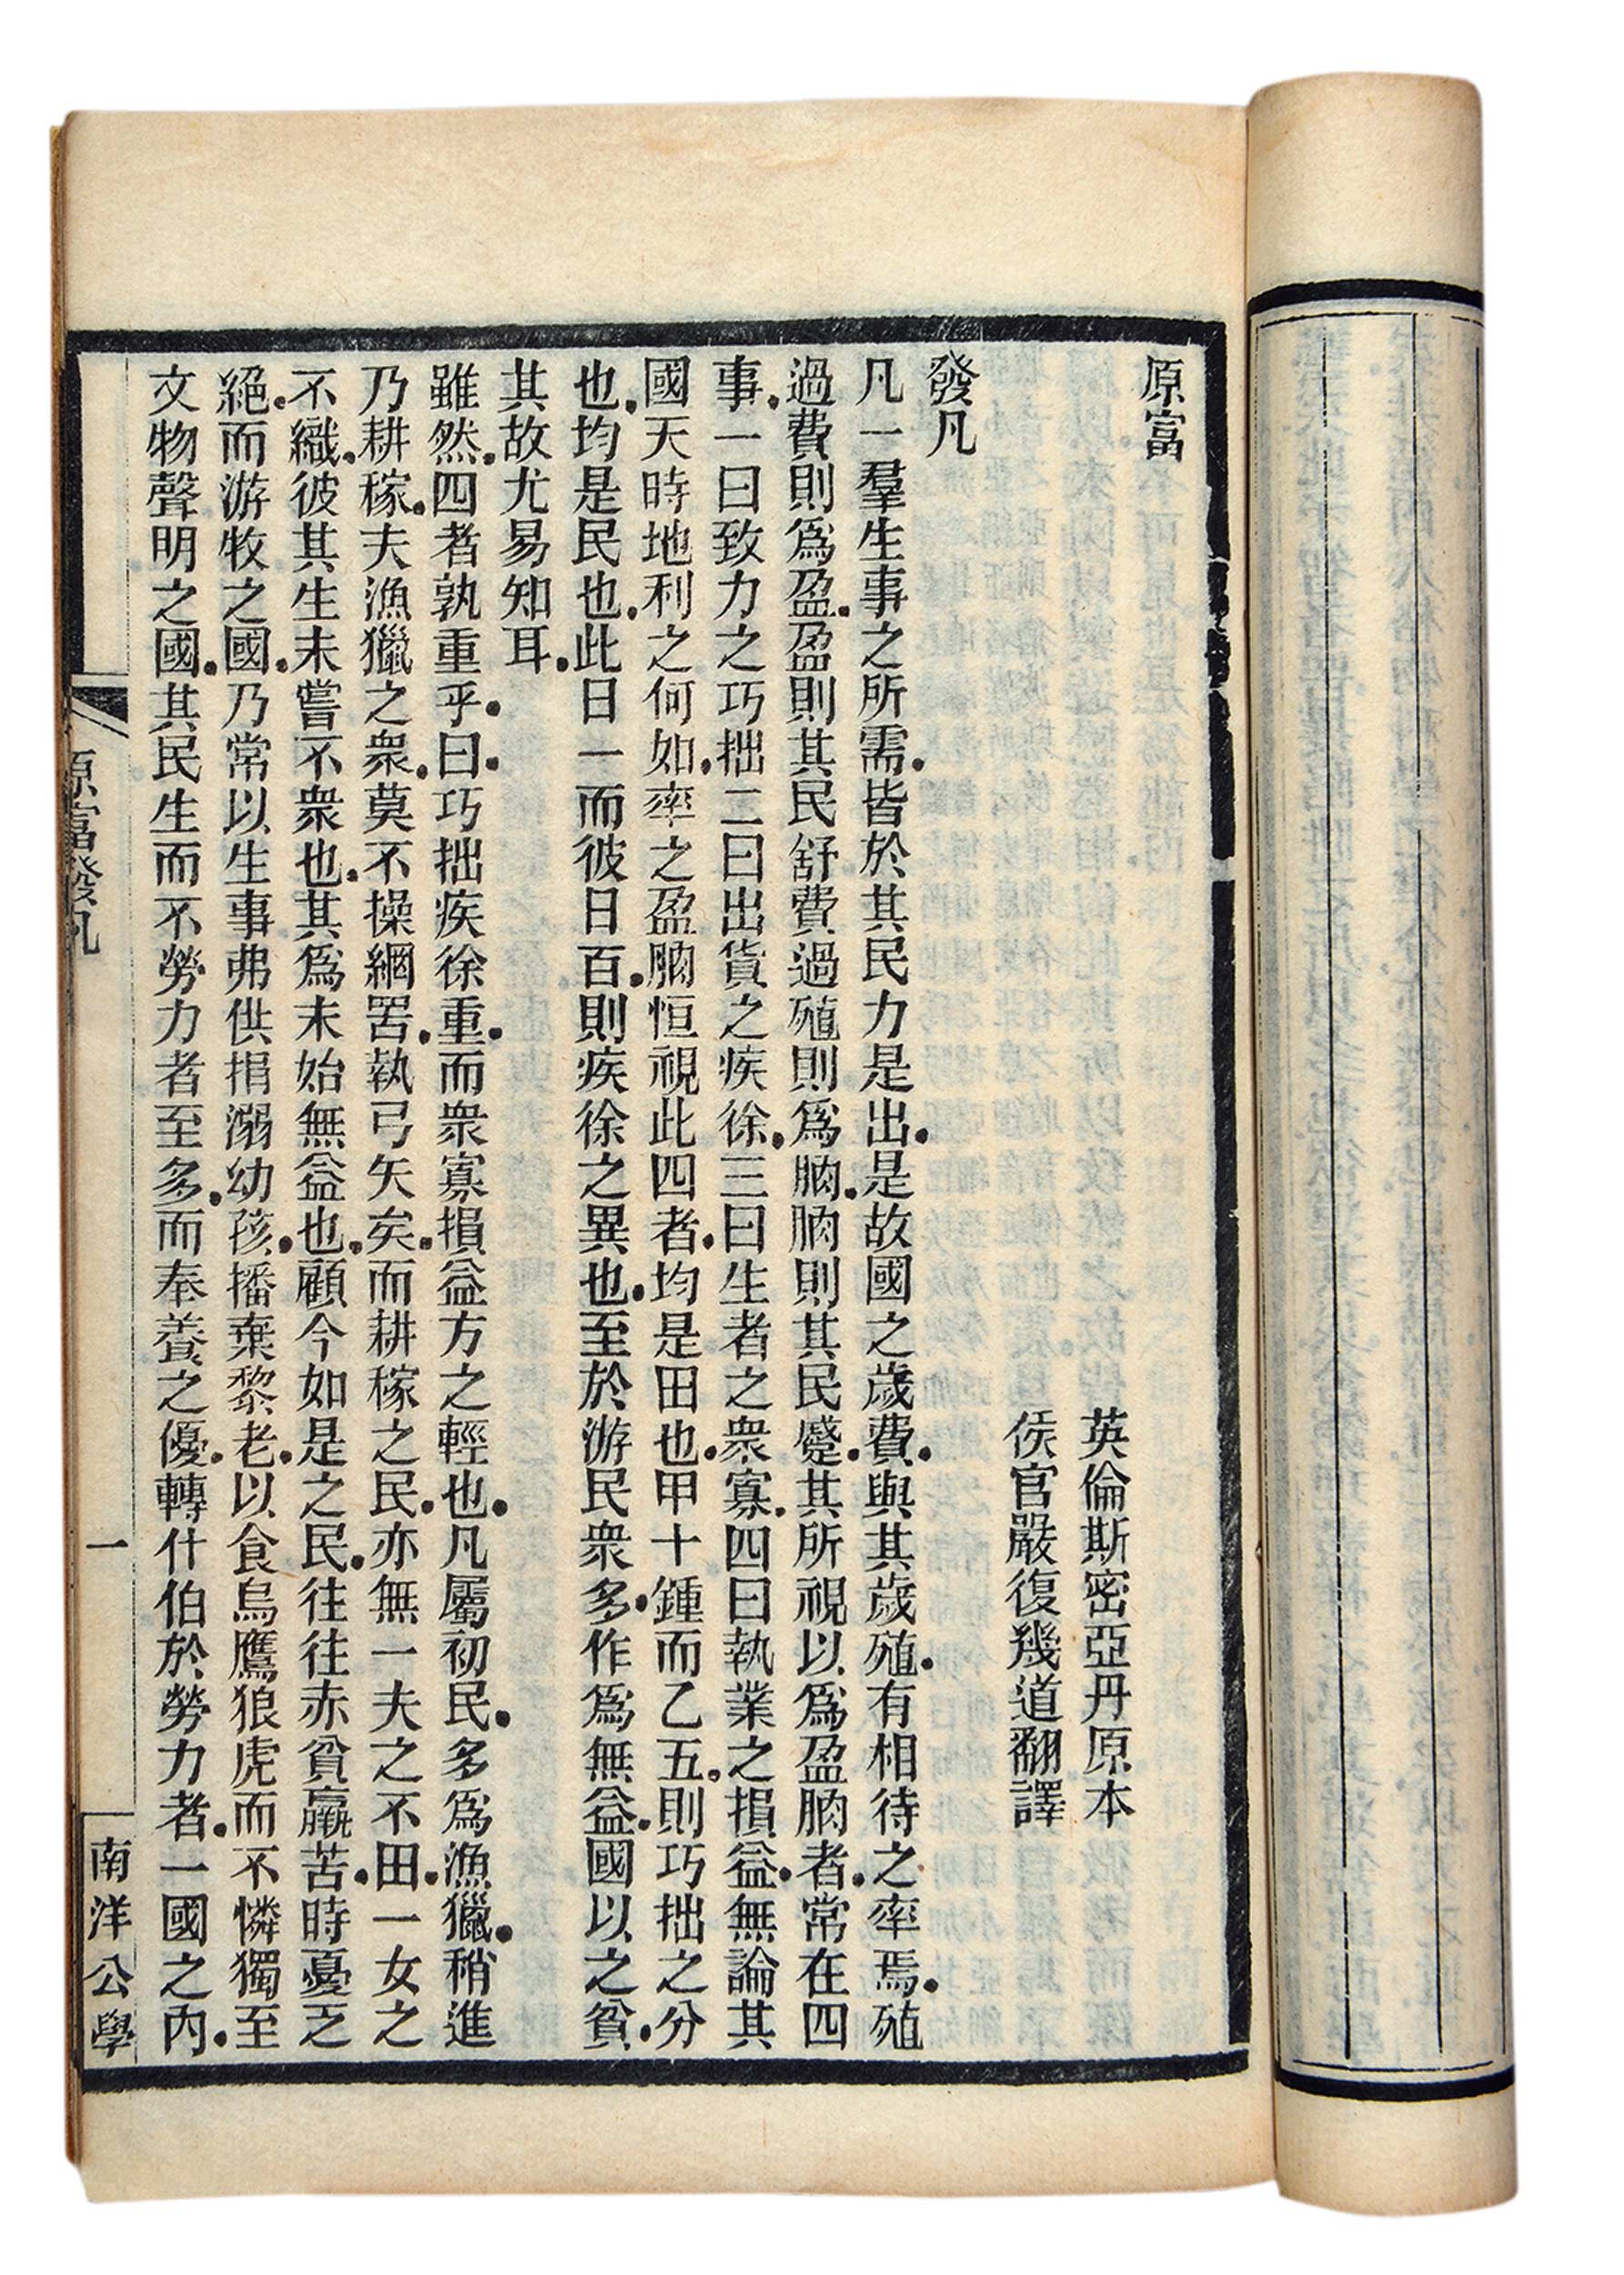 原富
英倫斯密亞丹原本
侯官嚴復幾道翻譯
發凡
凡一羣生事之所需.皆於其民力是出.是故國之歲費.與其歲殖.有相待之率焉.殖
過費則爲盈.盈則其民舒費過殖則爲朒.朒則其民蹙.其所視以爲盈朒者.常在四
事.一曰致力之巧拙二曰出貨之疾徐.三曰生者之衆寡.四曰執業之損益.無論其
國天時地利之何如.率之盈朒恒視此四者.均是田也.甲十鍾而乙五.則巧拙之分
也.均是民也.此日一而彼日百.則疾徐之異也.至於游民衆多.作爲無益.國以之貧.
其故尤易知耳.
雖然.四者孰重乎.曰.巧拙疾徐重.而衆寡損益方之輕也.凡屬初民.多爲漁獵.稍進
乃耕稼.夫漁獵之衆.莫不操網罟.執弓矢矣.而耕稼之民.亦無一夫之不田.一女之
不織.彼其生未嘗不衆也.其爲未始無益也.顧今如是之民.往往赤貧羸苦.時憂乏
絕.而游牧之國.乃常以生事弗供捐溺幼孩.播棄黎老.以食烏鷹狼虎而不憐獨至
文物聲明之國.其民生而不勞力者至多.而奉養之優.轉什伯於勞力者.一國之內.
原富發凡
一
南洋公學